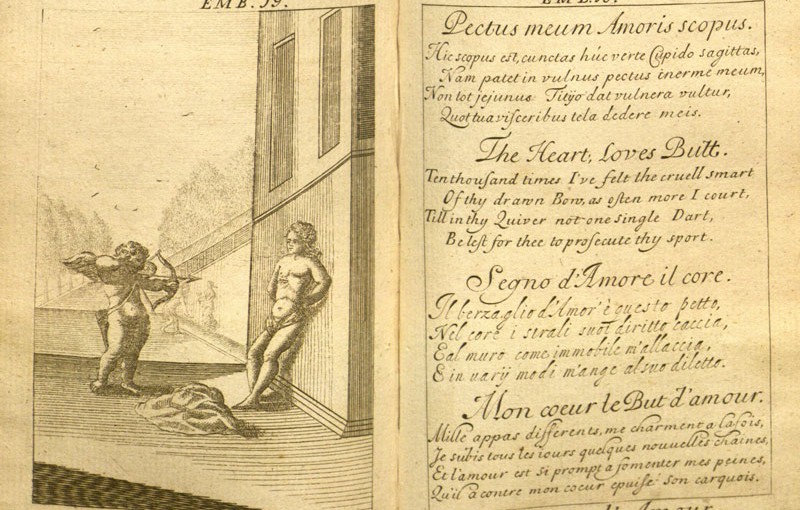 EMB. 19.
Pectus meum Amoris scopus.
Hic scopus est, cunctas húc verte Cupido sagittas,
Nam patet in vulnus pectus inerme meum,
Non tot jejunus Tityo dat vulnera vultur,
Quot tua visceribus tela dedere meis.
The Heart, Loves Butt.
Ten thousand times I've felt the cruell smart
Of thy drawn Bow, as often more I court,
Till in thy Quiver not one single Dart,
Be left for thee to prosecute thy sport.
Segno d'Amore il core.
Il berzaglio d'Amor' è questo petto,
Nel core i strali suoi diritto caccia,
E al muro come immobile m'allaccia,
E in varÿ modi m'ange al suo diletto.
Mon coeur le But d'amour.
Mille appas differents, me charment a la fois,
Je subis tous les iours quelques nouvelles chaines,
Et l'amour est si prompt a fomenter mes peines,
Qu'il à contre mon coeur epuisé son carquois.